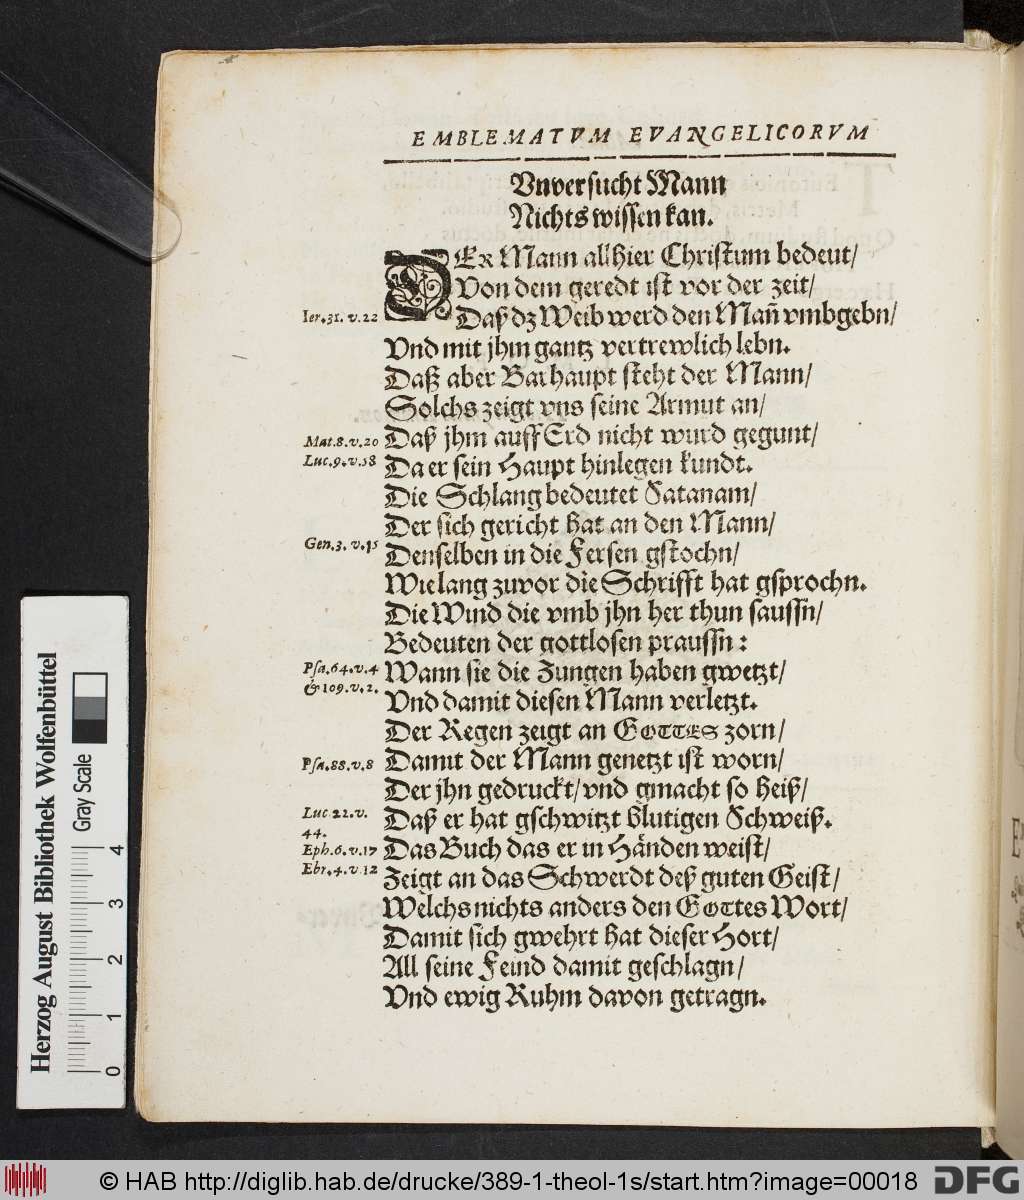 EMBLEMATVM EVANGELICORVM
Vnversucht Mann
Nichts wissen kan.
DEr Mann allhier Christum bedeut/
Von dem geredt ist vor der zeit/
Ier.31.v.22 Daß dz Weib werd den Mañ vmbgebn/
Vnd mit jhm gantz vertrewlich lebn.
Daß aber Barhaupt steht der Mann/
Solchs zeigt vns seine Armut an/
Mat.8.v.20 Daß jhm auff Erd nicht wurd gegunt/
Luc.9.v.58 Da er sein Haupt hinlegen kundt.
Die Schlang bedeutet Satanam/
Der sich gericht hat an den Mann/
Gen.3.v.15 Denselben in die Fersen gstochn/
Wielang zuvor die Schrifft hat gsprochn.
Die Wind die vmb jhn her thun saussn/
Bedeuten der gottlosen praussn:
Psa.64.v.4 Wann sie die Zungen haben gwetzt/
& 109.v.2. Vnd damit diesen Mann verletzt.
Der Regen zeigt an GOTTES zorn/
Psa.88.v.8 Damit der Mann genetzt ist worn/
Der jhn gedruckt/ vnd gmacht so heiß/
Luc 22.v. Daß er hat gschwitzt blutigen Schweiß.
44.
Eph.6.v.17 Das Buch das er in Händen weist/
Ebr.4.v.12 Zeigt an das Schwerdt deß guten Geist/
Welchs nichts anders den GOTtes Wort/
Damit sich gwehrt hat dieser Hort/
All seine Feind damit geschlagn/
Vnd ewig Ruhm davon getragn.
Herzog August Bibliothek Wolfenbüttel
Gray Scale
0 1 2 3 4
© HAB http://diglib.hab.de/drucke/389-1-theol-1s/start.htm?image=00018
DFG